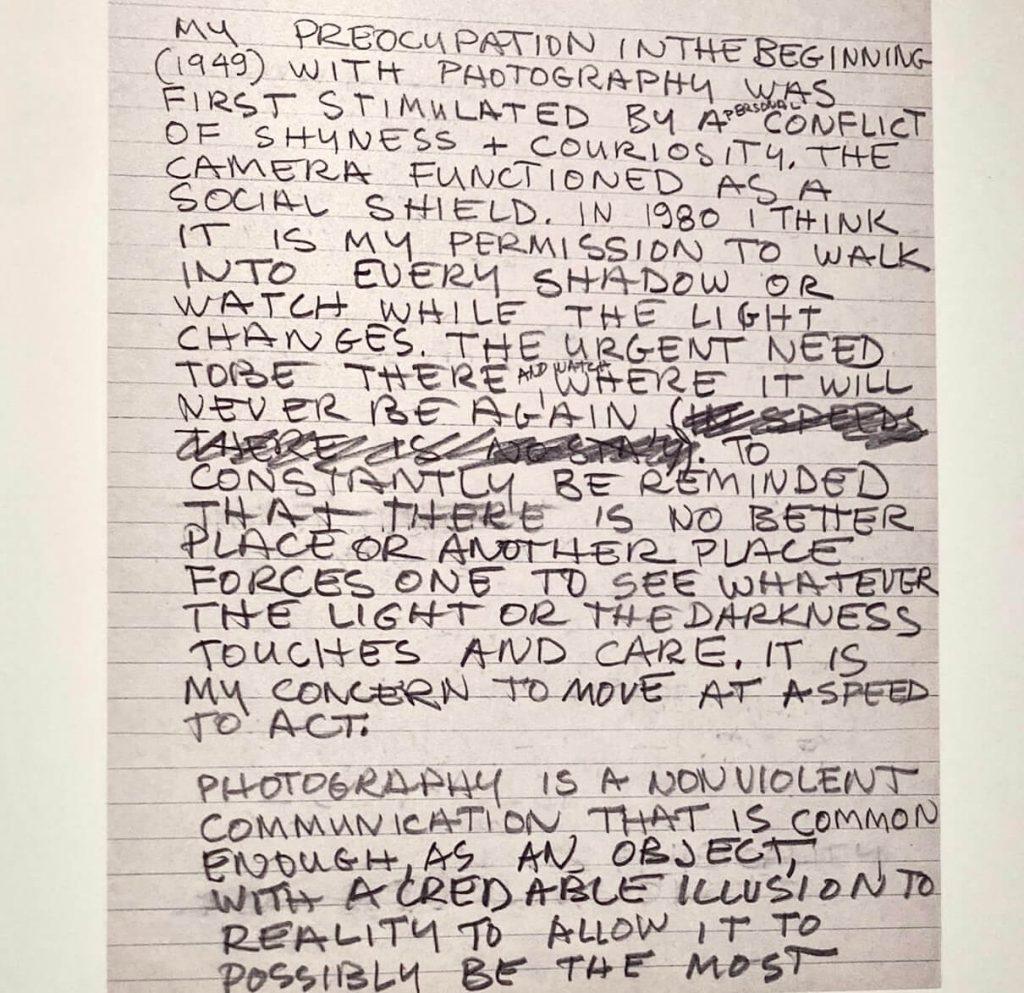 MY PREOCUPATION IN THE BEGINNING
(1949) WITH PHOTOGRAPHY WAS
FIRST STIMULATED BY A PERSONAL CONFLICT
OF SHYNESS + COURIOSITY. THE
CAMERA FUNCTIONED AS A
SOCIAL SHIELD. IN 1980 I THINK
IT IS MY PERMISSION TO WALK
INTO EVERY SHADOW OR
WATCH WHILE THE LIGHT
CHANGES. THE URGENT NEED
TO BE THERE AND WATCH, WHERE IT WILL
NEVER BE AGAIN (
THERE IS NO STAY). TO
CONSTANTLY BE REMINDED
THAT THERE IS NO BETTER
PLACE OR ANOTHER PLACE
FORCES ONE TO SEE WHATEVER
THE LIGHT OR THE DARKNESS
TOUCHES AND CARE. IT IS
MY CONCERN TO MOVE AT A SPEED
TO ACT.
PHOTOGRAPHY IS A NONVIOLENT
COMMUNICATION THAT IS COMMON
ENOUGH, AS AN OBJECT,
WITH A CREDABLE ILLUSION TO
REALITY TO ALLOW IT TO
POSSIBLY BE THE MOST